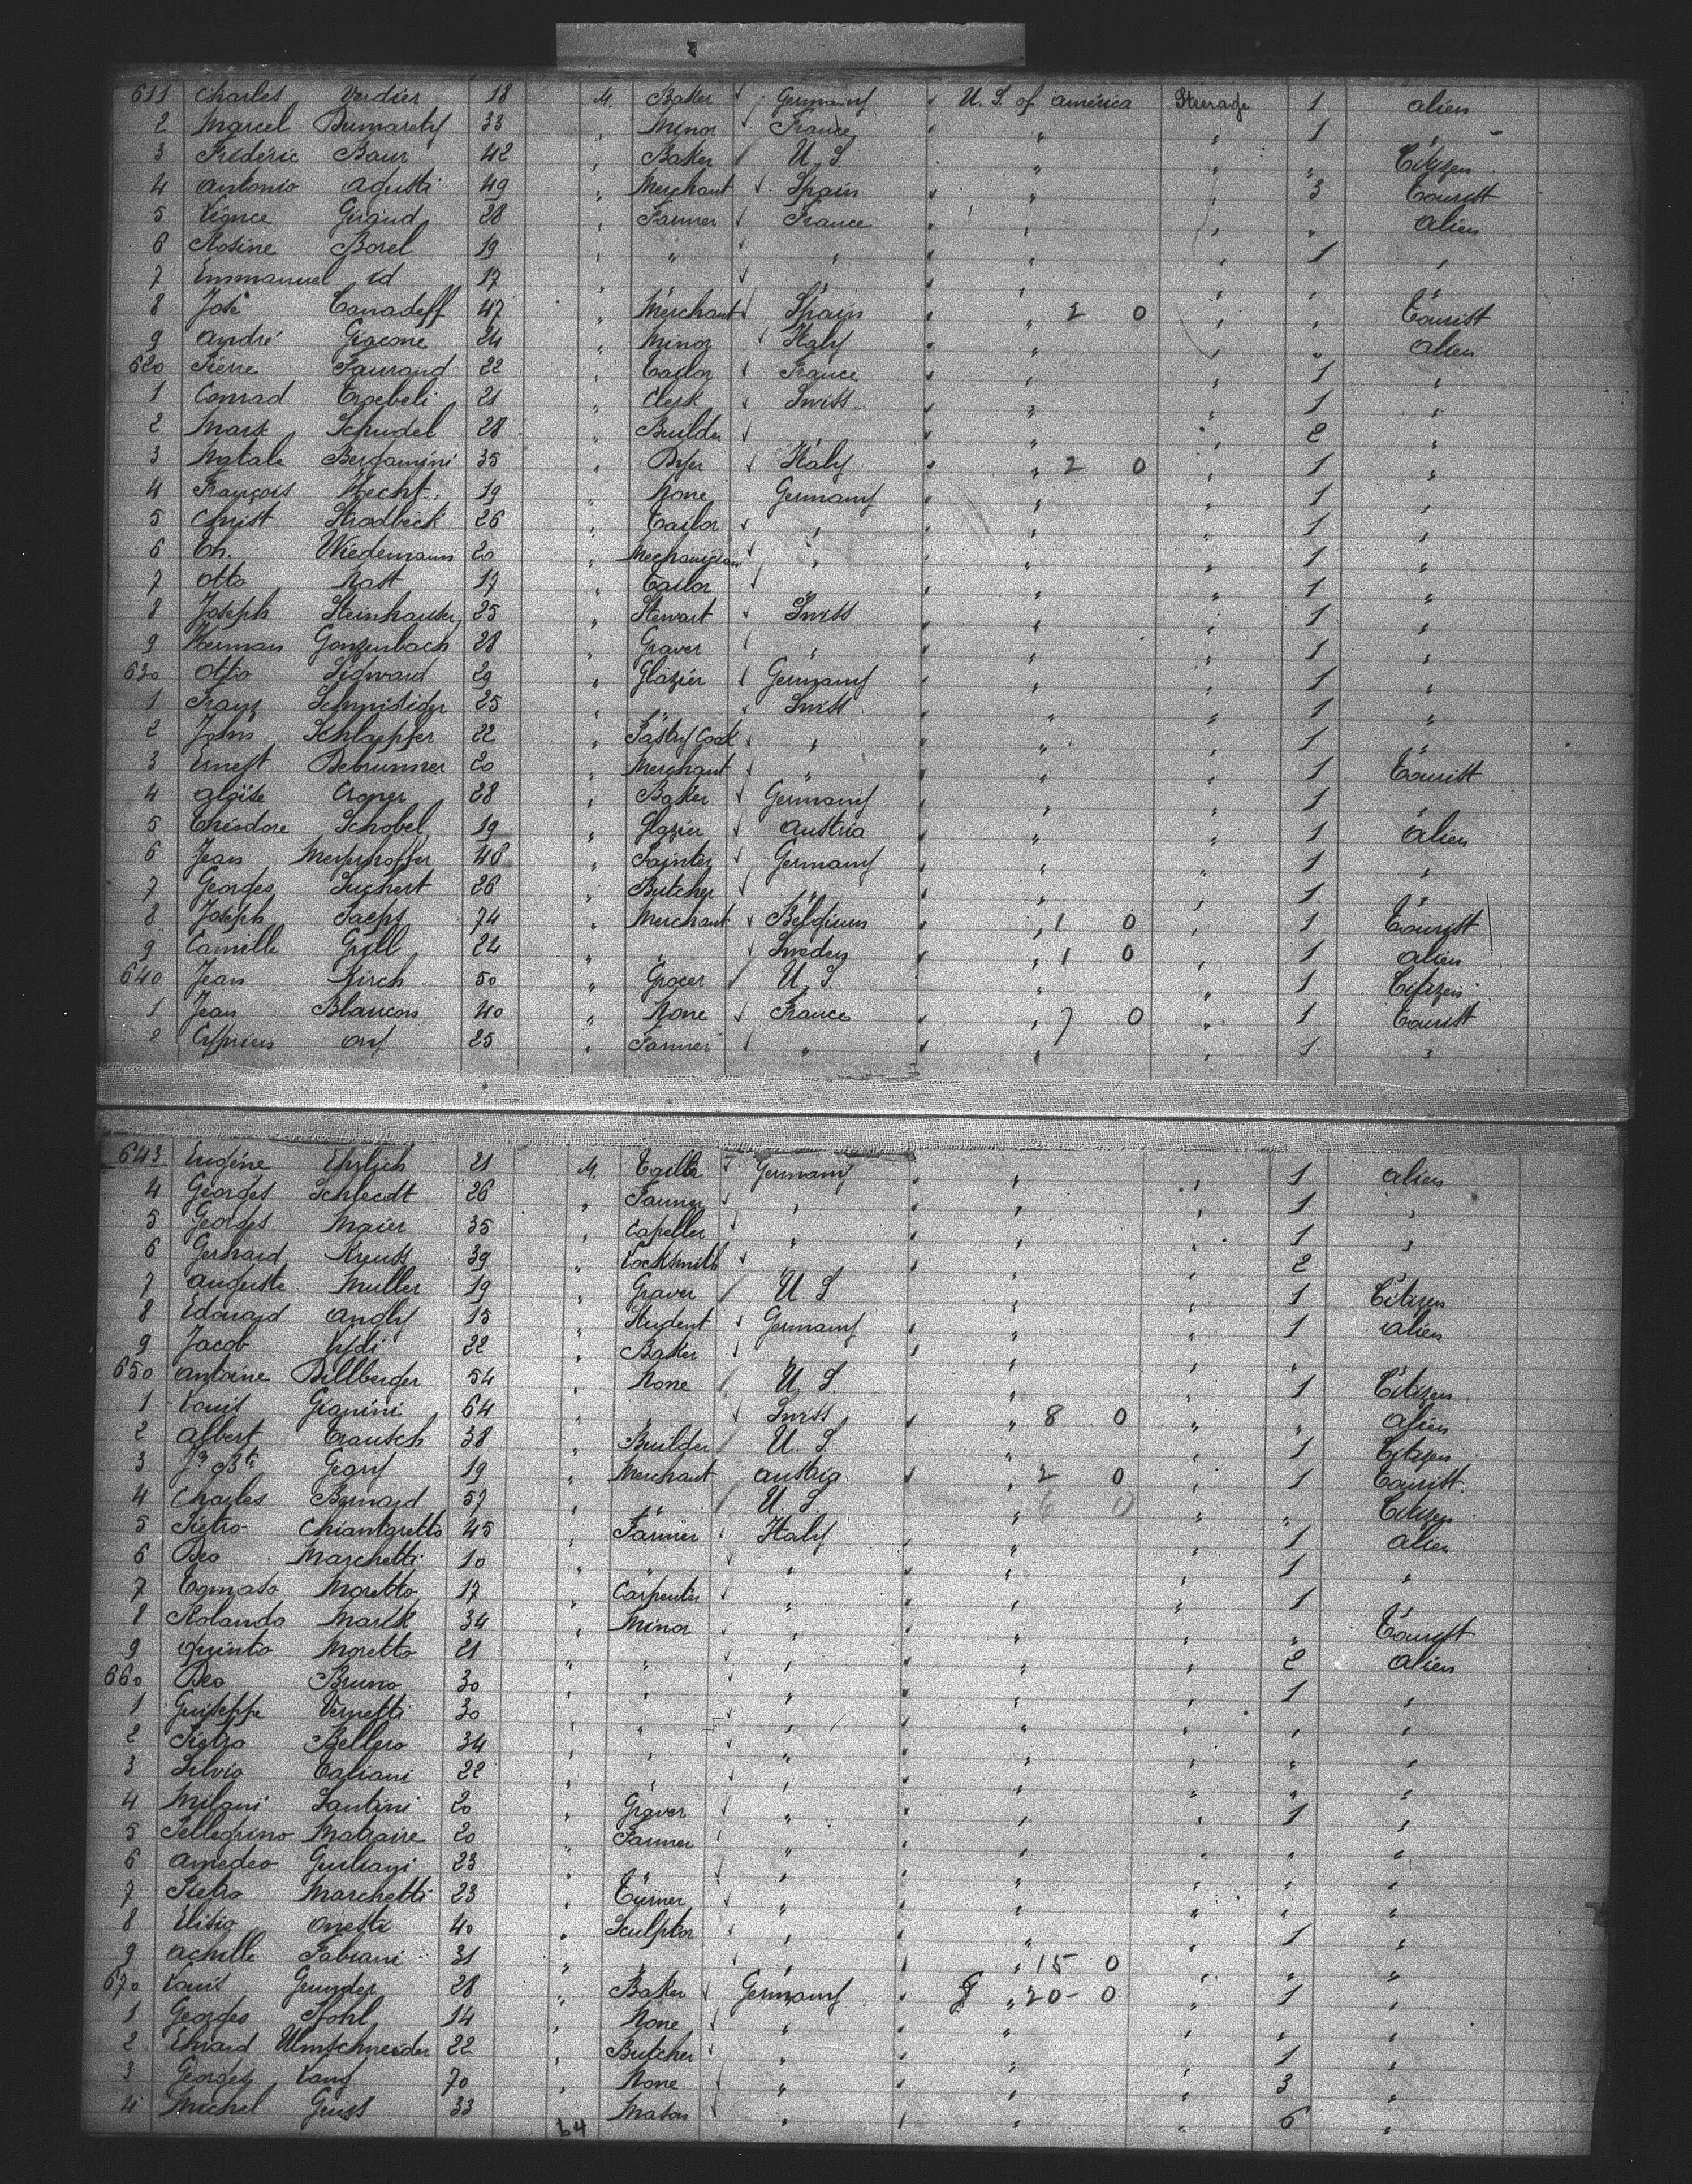 611 Charles Verdier 18 M. Baker Germany U. S. of América Steerage 1 alien
2 Marcel Dumarchy 33 " Minor France " " 1 "
3 Frédéric Baur 42 " Baker U. S " " " Citizen
4 Antonio Agusti 49 " Merchant Spain " " 3 Tourist
5 Giraud 28 " Farmer France " " " alien
6 Rosine Borel 19 " " " " " 1 "
7 Emmanuel id 17 " " " " " " "
8 José 47 " Merchant Spain " 2 0 " " Tourist
9 André Giacone 24 " Minor Italy " " " alien
620 Pierre Faurand 22 " Tailor France " " 1 "
1 Conrad 21 " Clerk Swiss " " 1 "
2 Mark Schudel 28 " Builder " " " 2 "
3 Natale Bergamini 35 " Dyer Italy " 2 0 " 1 "
4 François Hecht 19 " None Germany " " 1 "
5 Christ Stradbeck 26 " Tailor " " " 1 "
6 Th. Wiedemann 20 " Mechanician " " " 1 "
7 Otto Natt 17 " Tailor " " " 1 "
8 Joseph Steinhauser 25 " Stewart Swiss " " 1 "
9 Herman Gonzenbach 28 " Graver " " " 1 "
630 Otto Sigward 29 " Glazier Germany " " 1 "
1 Franz Schmidiger 25 " " Swiss " " 1 "
2 John Schlaepfer 22 " Pastry Cook " " " 1 "
3 Ernest Debrunner 20 " Merchant " " " 1 Tourist
4 Aloïse Croner 28 " Baker Germany " " 1 "
5 Théodore Schobel 19 " Glazier Austria " " 1 alien
6 Jean 48 " Painter Germany " " 1 "
7 Georges 26 " Butcher " " " 1 "
8 Joseph Saeys 74 " Merchant Belgium " 1 0 " 1 Tourist
9 Camille Grill 24 " " Sweden " 1 0 " 1 alien
640 Jean Kirch 50 " Grocer U. S. " " 1 Citizen
1 Jean Blancon 40 " None France " 7 0 " 1 Tourist
2 25 " Farmer " " " 1 "
643 Eugéne Ehrlich 21 M. Tailor Germany " " 1 alien
4 Georges Schlecdt 26 " Farmer " " " 1 "
5 Georges Maier 35 " Capeller " " " 1 "
6 Gerhard Kreuts 39 " Locksmith " " " 2 "
7 Auguste Muller 19 " Graver U. S " " 1 Citizen
8 Edouard Angly 15 " Student Germany " " 1 alien
9 Jacob 22 " Baker " " " " "
650 Antoine Billberger 54 " None U. S. " " 1 Citizen
1 Louis Gianini 64 " " Swiss " 8 0 " " alien
2 Albert Trautsch 38 " Builder U. S. " " 1 Citizen
3 Jn Bte Geary 19 " Merchant Austria " 2 0 " 1 Tourist
4 Charles Bernard 57 " " U. S " 6 0 " " Citizen
5 Pietro Chiantaretto 45 " Farmer Italy " " 1 alien
6 Deo Marchetti 10 " " " " " 1 "
7 Tomaso Moretto 17 " Carpenter " " " 1 "
8 Rolando 34 " Minor " " " " Tourist
9 Quinto Moretto 21 " " " " " 2 alien
660 Deo Bruno 30 " " " " " 1 "
1 Guiseppe Vernetti 30 " " " " " " "
2 Pietro Bellero 34 " " " " " " "
3 Silvio Taliani 22 " " " " " " "
4 Milani Santini 20 " Graver " " " 1 "
5 Pellegrino Matraire 20 " Farmer " " " " "
6 Amedeo Giuliani 23 " " " " " " "
7 Pietro Marchetti 23 " Turner " " " " "
8 Elisio Onesti 40 " Sculptor " " " 1 "
9 Achille Fabiani 31 " " " " 15 0 " " "
670 Louis Gunder 28 " Baker Germany " 20 - 0 " 1 "
1 Georges Stohl 14 " None " " " " "
2 Edward Ulmschneider 22 " Butcher " " " 1 "
3 Georges Lang 70 " None " " " 3 "
4 Michel Guss 33 " Mason " " " 6 "
64